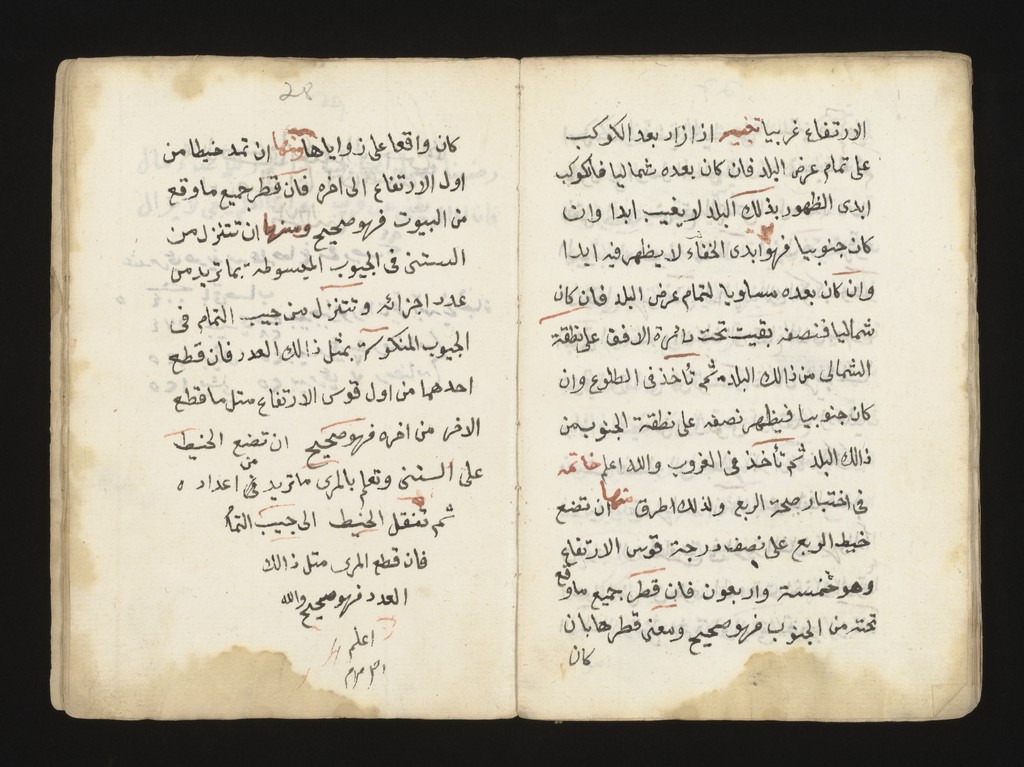 الارتفاع غربيا تنبيه اذا زاد بعد الكوكب
على تمام عرض البلد فان كان بعده شماليا فالكوكب
ابدى الظهور بذلك البلد لا يغيب ابدا وان
كان جنوبيا فهو ابدى الخفاء لا يظهر فيه ابدا
وان كان بعده مساويا لتمام عرض البلد فان كان
شماليا فنصفه بقيت تحت دائرة الافق على نطقة
الشمالى من ذالك البلد ثم تأخذ فى الطلوع وان
كان جنوبيا فيظهر نصفه على نطقة الجنوب من
ذالك البلد ثم تأخذ فى الغروب والله اعلم خاتمه
فى اختبار صحة الربع ولذلك طرق منها ان تضع
خيط الربع على نصف درجة قوس الارتفاع
وهو خمسة واربعون فان قطر جميع ما وقع
تحته من الجنوب فهو صحيح ومعنى قطرها بان
كان
28
كان واقعا على زواياها ومنها ان تمد خيطا من
اول الارتفاع الى اخره فان قطر جميع ما وقع
من البيوت فهو صحيح ومنها ان تتنزل من
الستنى فى الجيوب المبسوطة بما تريد من
عدد اجزائه وتتنزل من جيب التمام فى
الجيوب المنكوسة بمثل ذالك العدد فان قطع
احدهما من اول قوس الارتفاع مثل ما قطع
الاخر من اخره فهو صحيح ان تضع الخيط
على الستنى وتعلم بالمرى ما تريد من اعداد ه
ثم تنقل الخيط الى جيب التمام
فان قطع المرى مثل ذالك
العدد فهو صحيح والله
اعلم